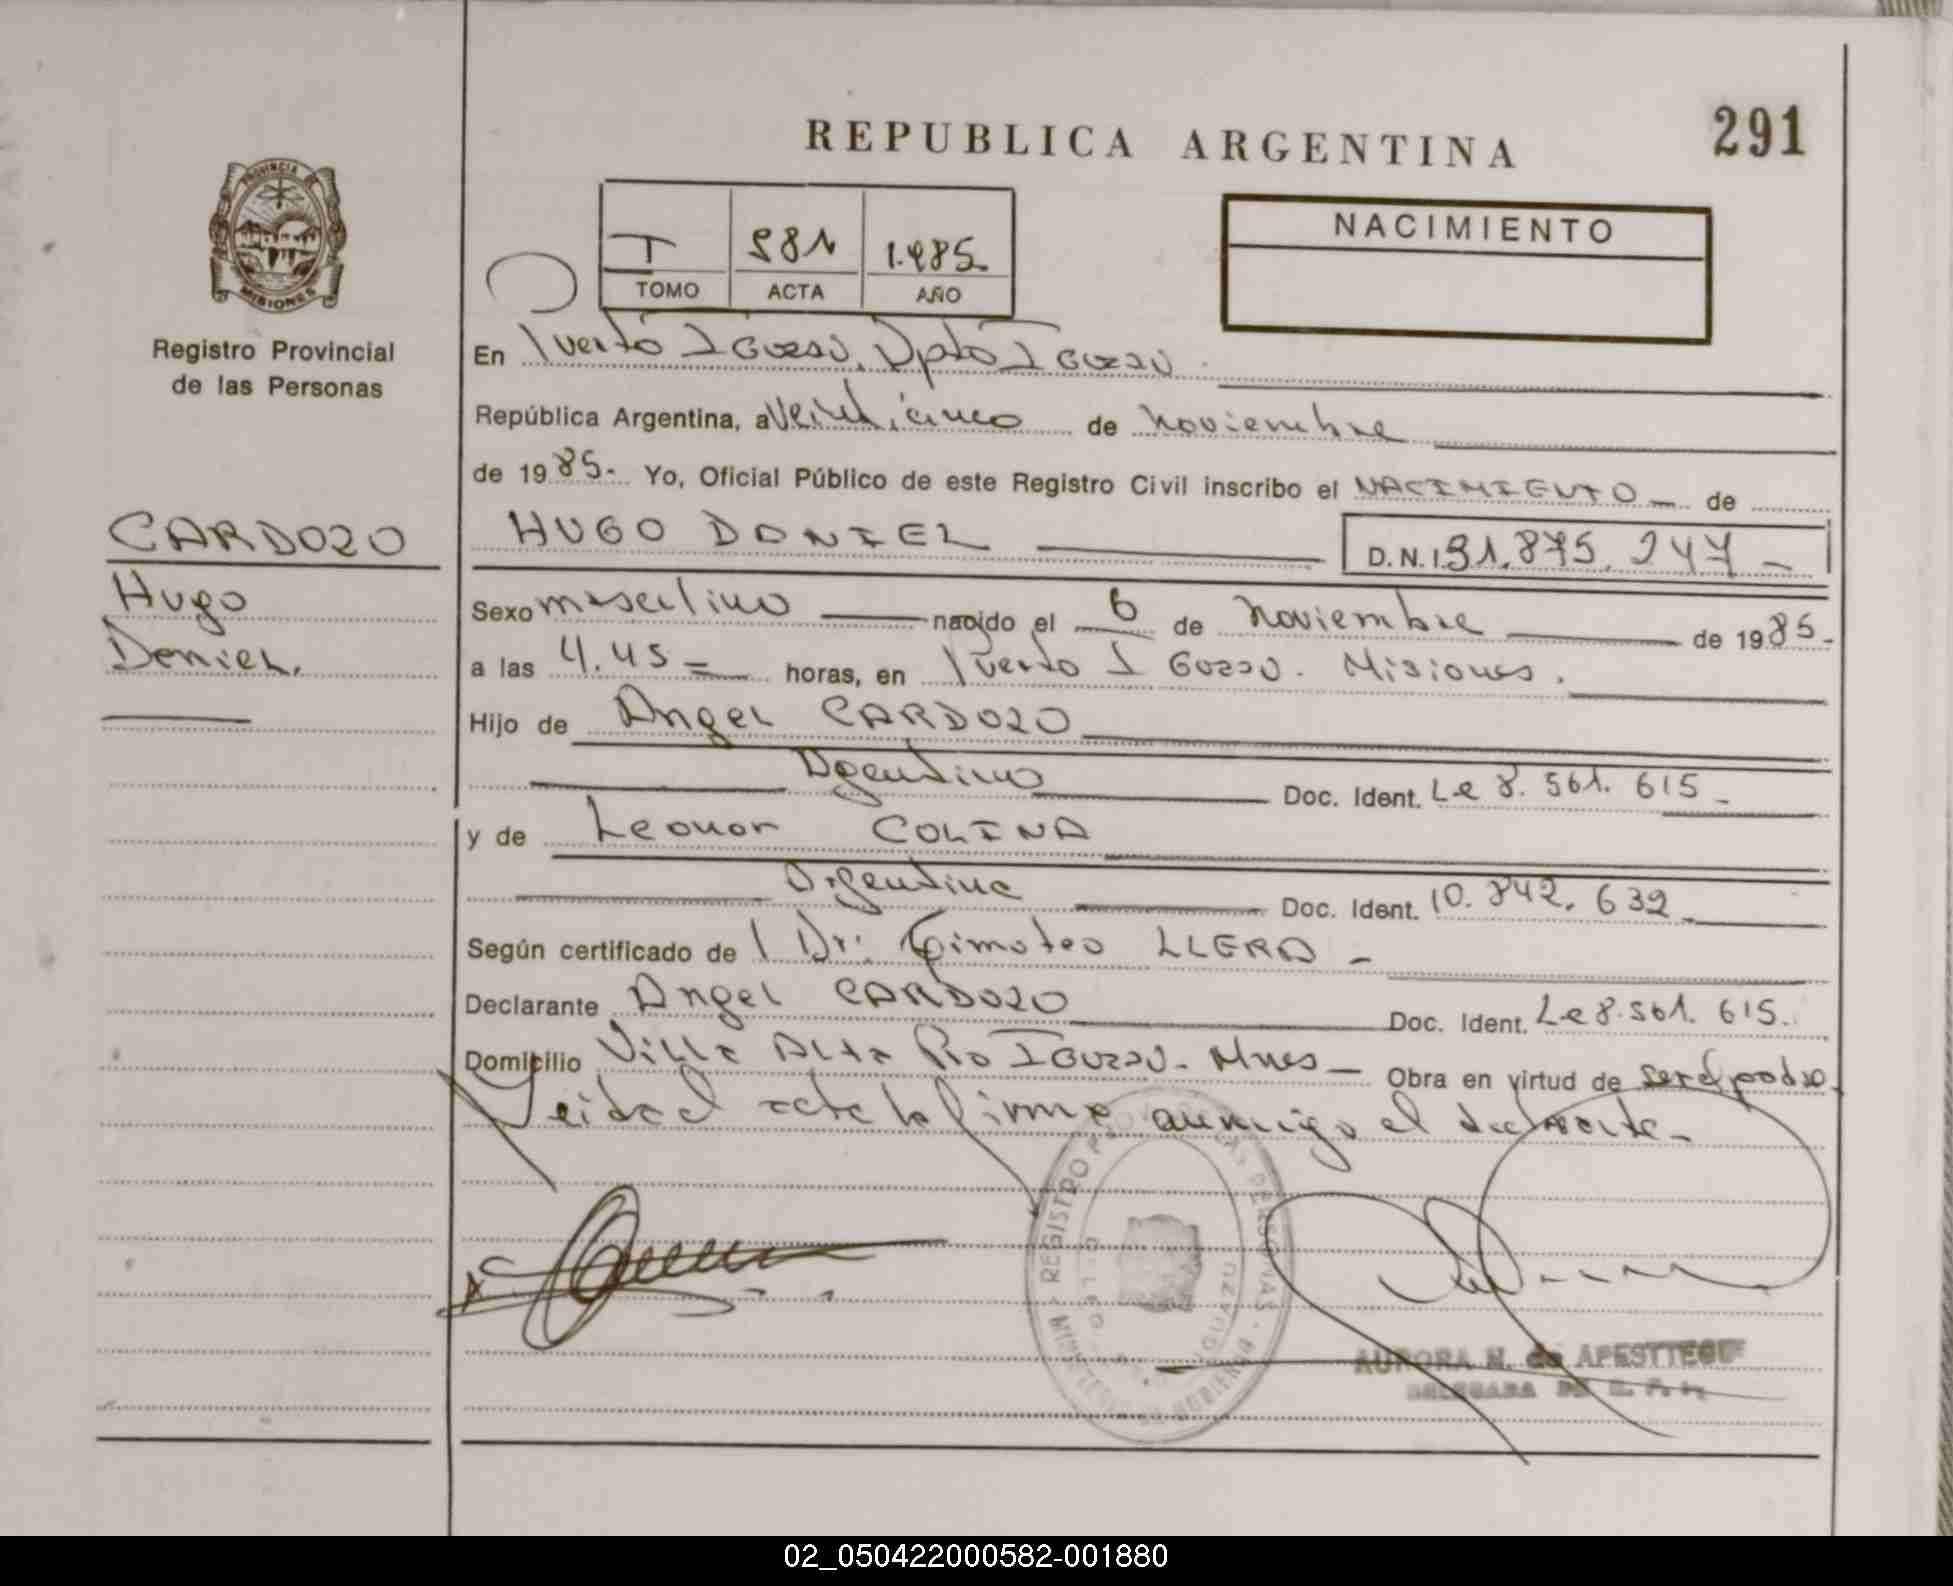 REPUBLICA ARGENTINA
291
PROVINCIA DE
MISIONES
Registro Provincial
de las Personas
T 581 1.985
TOMO ACTA AÑO
NACIMIENTO
En Puerto Iguazu, Dpto Iguazu
República Argentina, a Veinticinco de noviembre
de 1985. Yo, Oficial Público de este Registro Civil inscribo el NACIMIENTO de
CARDOZO
Hugo
Daniel.
HUGO DANIEL D.N.I. 31.875.247
Sexo masculino nacido el 6 de noviembre de 1985.
a las 4.45 = horas, en Puerto Iguazu. Misiones.
Hijo de Angel CARDOZO
Argentino Doc. Ident. Le 8.561.615
y de Leonor COLINA
Argentina Doc. Ident. 10.842.632
Según certificado de Dr. Timoteo LLERA
Declarante Angel CARDOZO Doc. Ident. Le 8.561.615.
Domicilio Villa Alta Pto Iguazu. Mnes Obra en virtud de ser el padre
Leida el acta la firma conmigo el declarante.
AURORA N. de APESTTEGUI
DELEGADA
02_050422000582-001880